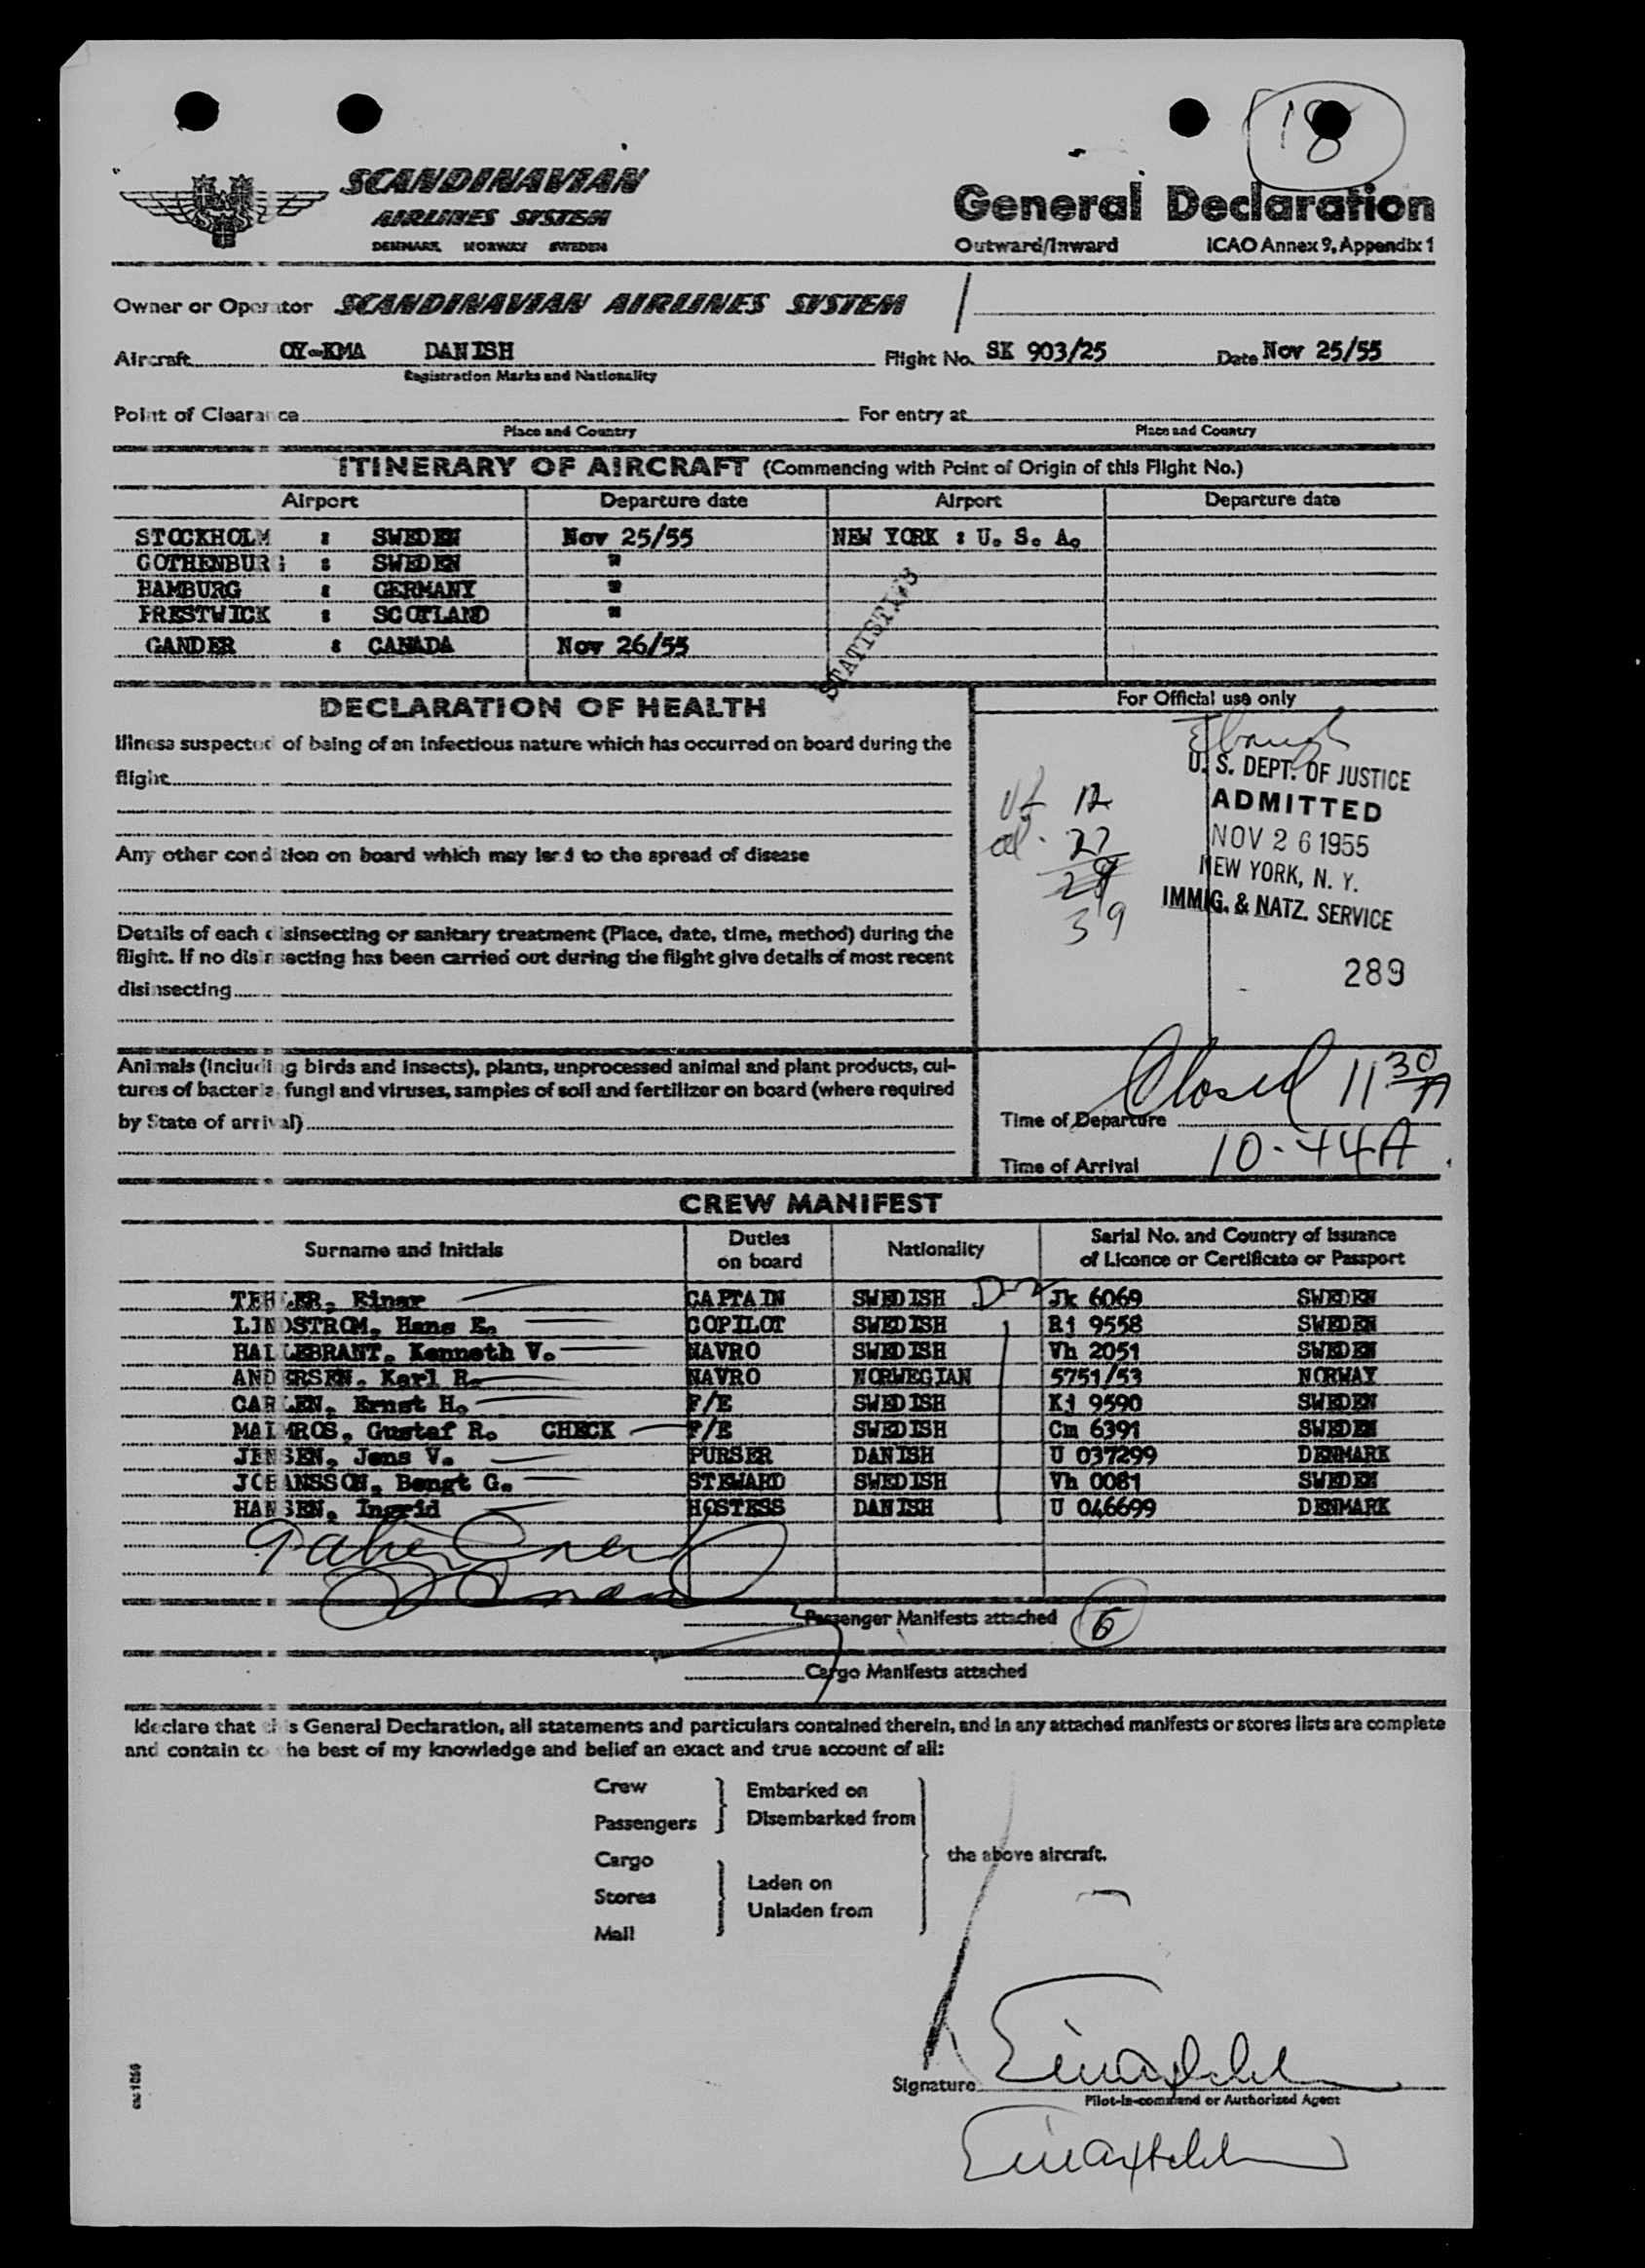 18
SCANDINAVIAN
AIRLINES SYSTEM
DENMARK NORWAY SWEDEN
General Declaration
Outward/Inward ICAO Annex 9, Appendix 1
Owner or Operator SCANDINAVIAN AIRLINES SYSTEM
Aircraft OY-KMA DANISH Flight No. SK 903/25 Date Nov 25/55
Registration Marks and Nationality
Point of Clearance For entry at
Place and Country Place and Country
ITINERARY OF AIRCRAFT (Commencing with Point of Origin of this Flight No.)
Airport Departure date Airport Departure date
STOCKHOLM : SWEDEN Nov 25/55 NEW YORK : U. S. A.
GOTHENBURG : SWEDEN "
HAMBURG : GERMANY "
PRESTWICK : SCOTLAND "
GANDER : CANADA Nov 26/55
STATISTICS
DECLARATION OF HEALTH
For Official use only
Illness suspected of being of an infectious nature which has occurred on board during the
flight
Any other condition on board which may lead to the spread of disease
Details of each disinsecting or sanitary treatment (Place, date, time, method) during the
flight. If no disinsecting has been carried out during the flight give details of most recent
disinsecting
12
27
29
39
U. S. DEPT. OF JUSTICE
ADMITTED
NOV 26 1955
NEW YORK, N. Y.
IMMIG. & NATZ. SERVICE
289
Animals (including birds and insects), plants, unprocessed animal and plant products, cul-
tures of bacteria, fungi and viruses, samples of soil and fertilizer on board (where required
by State of arrival)
Closed 11 30 A
Time of Departure
Time of Arrival 10-44A
CREW MANIFEST
Surname and Initials Duties on board Nationality Serial No. and Country of Issuance of Licence or Certificate or Passport
TEHLER, Einar CAPTAIN SWEDISH D-2 Jk 6069 SWEDEN
LINDSTROM, Hans E. COPILOT SWEDISH Rj 9558 SWEDEN
HALLEBRANT, Kenneth V. NAVRO SWEDISH Vh 2051 SWEDEN
ANDERSEN, Karl R. NAVRO NORWEGIAN 5751/53 NORWAY
CARLEN, Ernst H. F/E SWEDISH Kj 9590 SWEDEN
MALMROS, Gustaf R. CHECK F/E SWEDISH Cm 6391 SWEDEN
JENSEN, Jens V. PURSER DANISH U 037299 DENMARK
JOHANSSON, Bengt G. STEWARD SWEDISH Vh 0081 SWEDEN
HANSEN, Ingrid HOSTESS DANISH U 046699 DENMARK
Passenger Manifests attached 6
Cargo Manifests attached
I declare that this General Declaration, all statements and particulars contained therein, and in any attached manifests or stores lists are complete
and contain to the best of my knowledge and belief an exact and true account of all:
Crew
Passengers
Embarked on
Disembarked from
Cargo
Stores
Mail
Laden on
Unladen from
the above aircraft.
Signature
Pilot-in-command or Authorized Agent